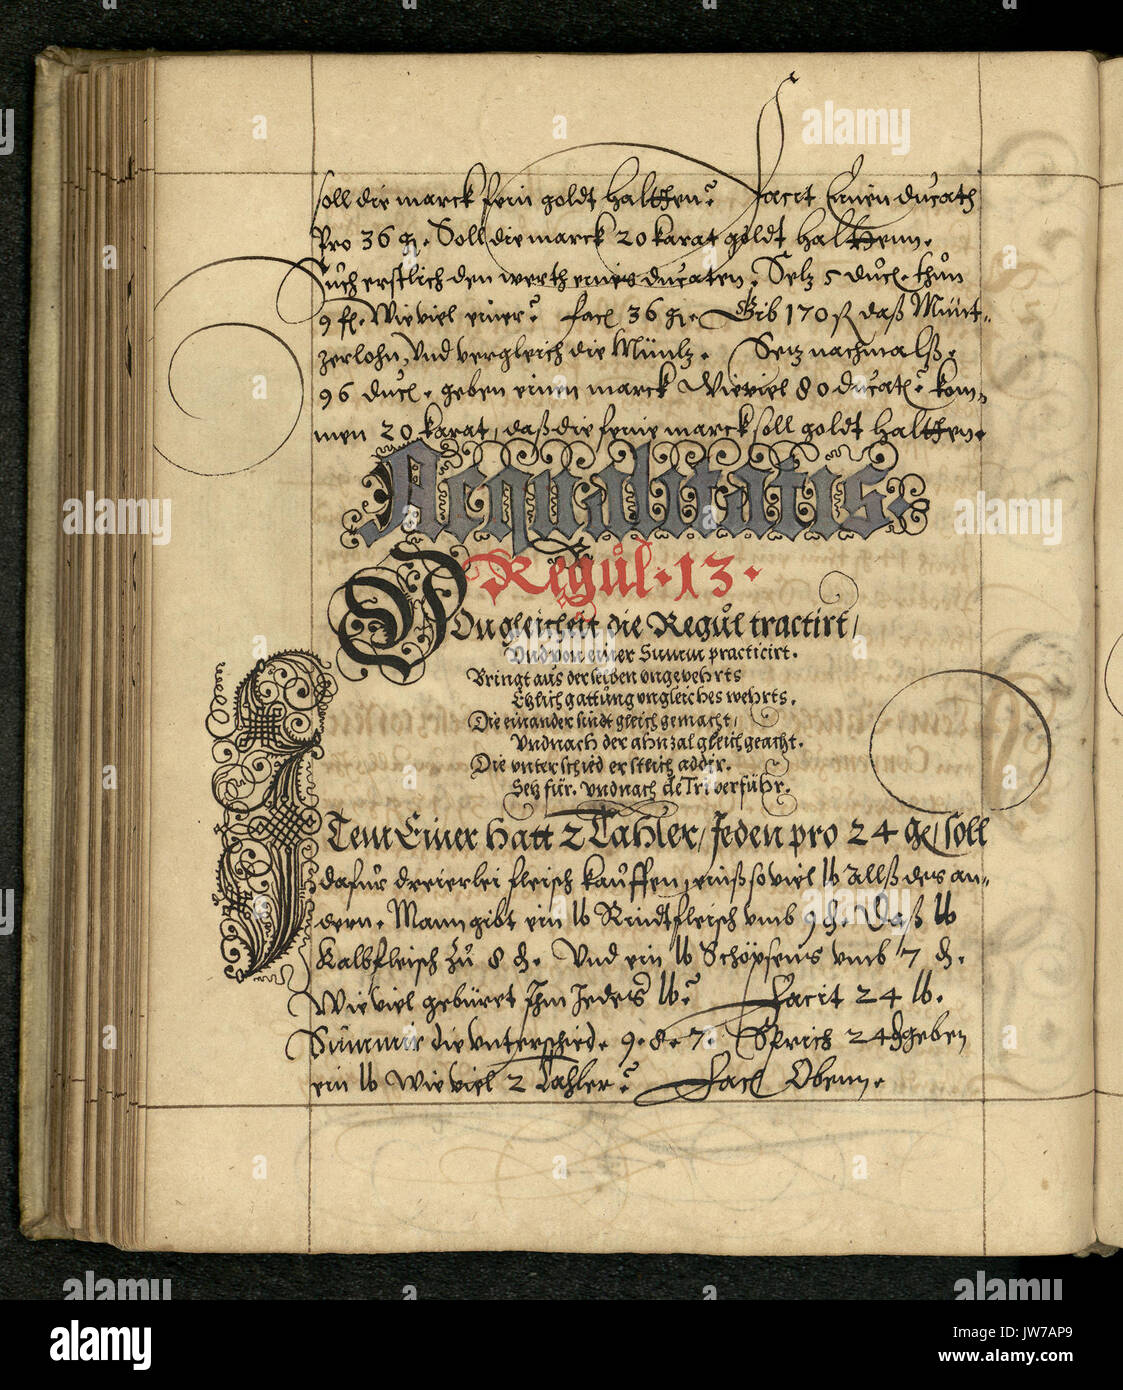 soll die marck fein goldt halthen? Facit Einen ducath
Pro 36 gr. Soll die marck 20 karat goldt halthenn.
Such erstlich den werth eines ducaten. Setz 5 duc. thun
9 fl. Wie viel einer? Fac 36 gr. Gib 170 daß Münt-
zerlohn, Vnd vergleich die Müntz. Setz nachmalß.
96 duc. geben einen marck Wie viel 80 ducat? kom-
men 20 karat, daß die feine marck soll goldt halthen.
Aequalitatis.
Regul. 13.
Von gleicheit die Regul tractirt/
Vnd von einer Summ practicirt.
Bringt aus derselben ongevehrts
Etzlich gattung vngleiches wehrts.
Die einander sindt gleich gemacht/
Vnd nach der ahnzal gleich geacht.
Die vnterschied erstlich addir.
Setz für. vnd nach de Tri verführ.
ITem Einer hatt 2 Tahler/ Jeden pro 24 gr/ soll
dafur dreierlei fleisch kauffen, einß so viel lb allß des an-
dern. Mann gibt ein lb Rindtfleisch vmb 9 d. Daß lb
Kalbfleisch zu 8 d. Vnd ein lb Schöpsens vmb 7 d.
Wie viel gebüret Ihm Jedes lb? Facit 24 lb.
Summir die vnterschied. 9. 8. 7. Sprich 24 d geben
ein lb Wie viel 2 Tahler? Fac Obenn.
alamy
Image ID: JW7AP9
www.alamy.com